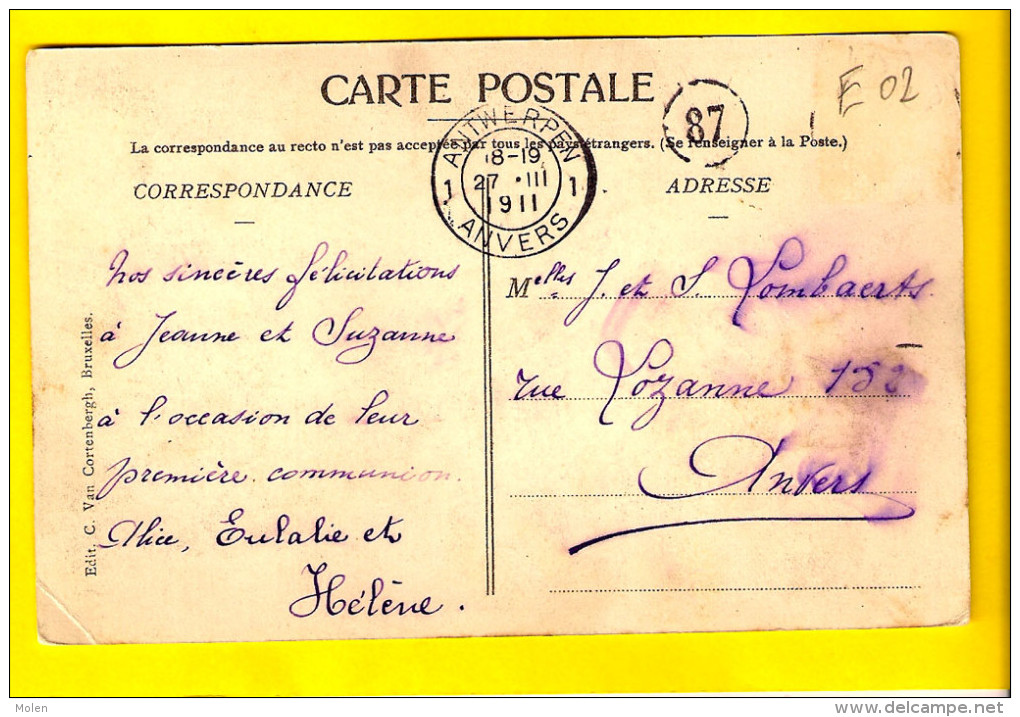 CARTE POSTALE
87
E 02
La correspondance au recto n'est pas acceptée par tous les pays étrangers. (Se renseigner à la Poste.)
ANTWERPEN
18-19
1 27 · III 1
1911
ANVERS
CORRESPONDANCE
ADRESSE
Nos sincères félicitations
à Jeanne et Suzanne
à l'occasion de leur
première communion.
Alice, Eulalie et
Hélène.
Melles J. et S. Lombaerts
rue Lozanne
Anvers
Edit. C. Van Cortenbergh, Bruxelles.
Molen
delcampe.net